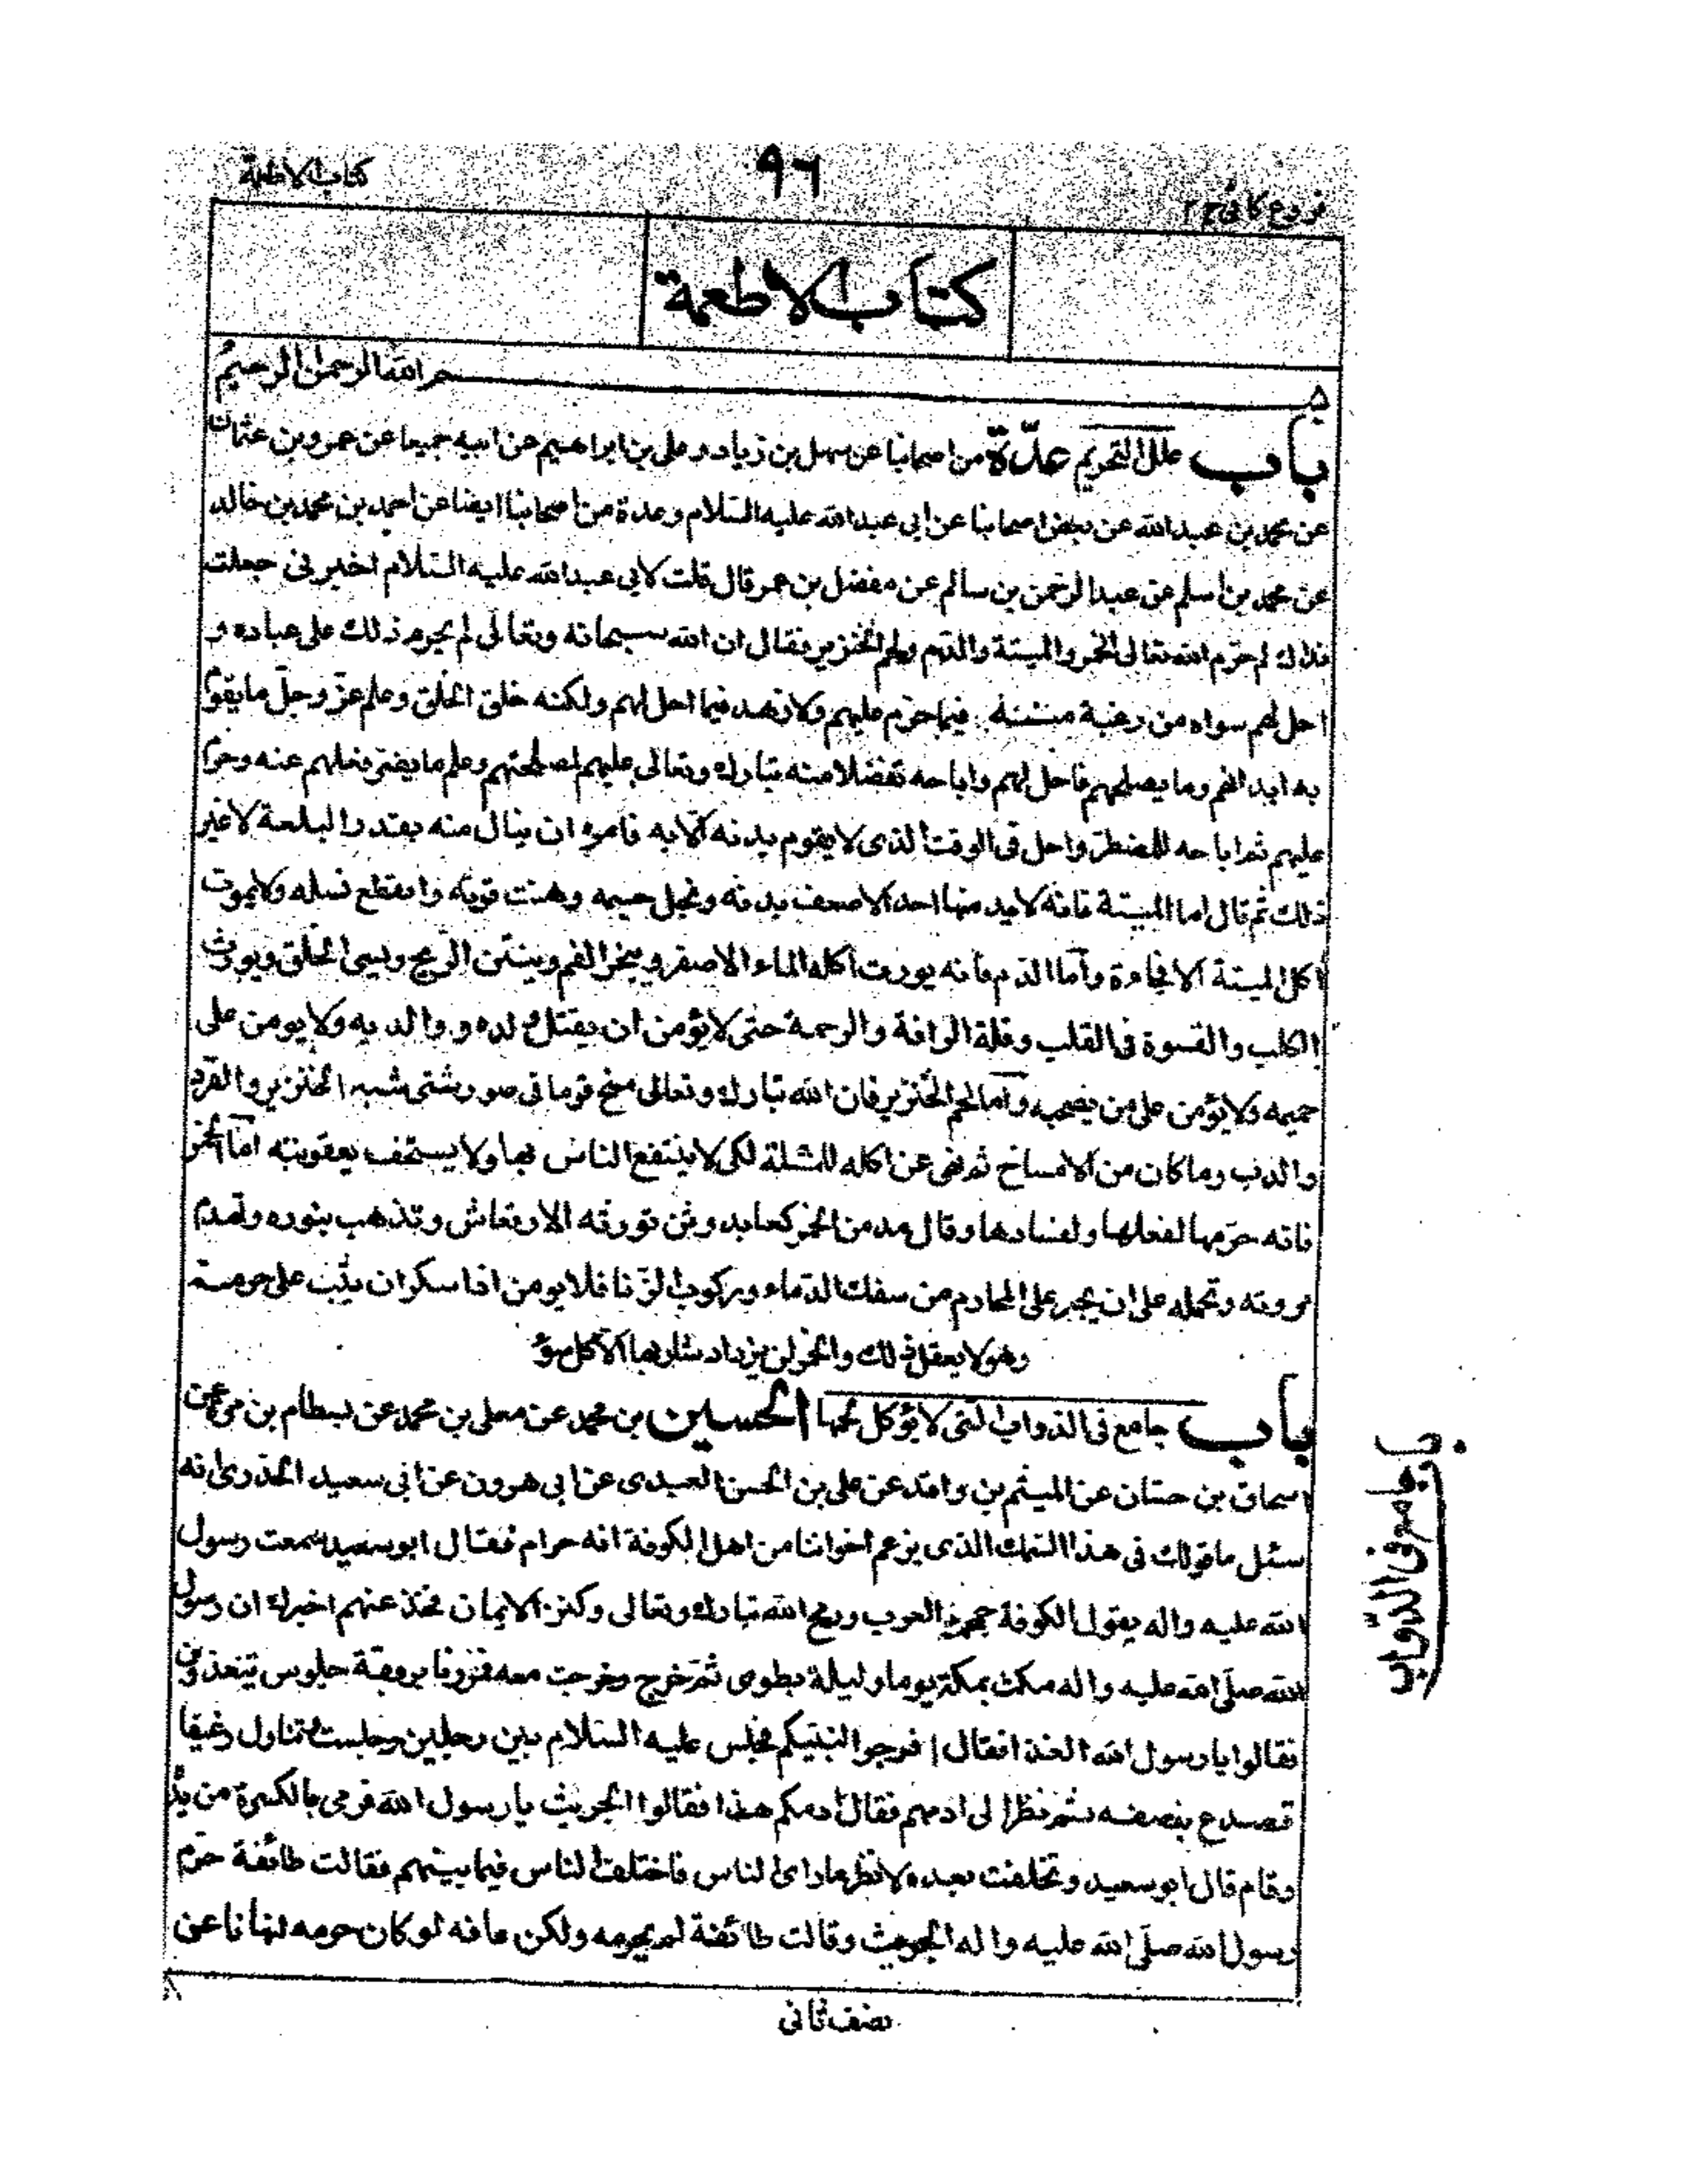 فروع كافى ج ٢
٩٦
كتاب الاطعمة
كتاب الاطعمة
بسم الله الرحمن الرحيم
باب علل التحريم عدّة من اصحابنا عن سهل بن زياد وعلى بن ابراهيم عن ابيه جميعا عن عمرو بن عثمان
عن محمد بن عبدالله عن بعض اصحابنا عن ابى عبدالله عليه السلام وعدة من اصحابنا ايضا عن احمد بن محمد بن خالد
عن محمد بن اسلم عن عبدالرحمن بن سالم عن مفضل بن عمر قال قلت لابى عبدالله عليه السلام اخبرنى جعلت
فداك لم حرّم الله تعالى الخمر والميتة والدم ولحم الخنزير فقال ان الله سبحانه وتعالى لم يحرم ذلك على عباده و
احل لهم سواه من رغبة منه فيما حرم عليهم ولا زهد فيما احل لهم ولكنه خلق الخلق وعلم عزّ وجلّ ما يقوم
به ابدانهم وما يصلحهم فاحل لهم واباحه تفضلا منه تبارك وتعالى عليهم لمصلحتهم وعلم ما يضرهم فنهاهم عنه وحرّمه
عليهم ثم اباحه للمضطر واحل فى الوقت الذى لا يقوم بدنه الّا به فامره ان ينال منه بقدر البلغة لا غير
ذلك ثم قال اما الميتة فانه لا يدمنها احد الا ضعف بدنه ونحل جسمه وهنت قوته وانقطع نسله ولا يموت
اكل الميتة الا فجاءة وأمّا الدم فانه يورث اكله الماء الاصفر ويبخر الفم وينتن الريح ويسئ الخلق ويورث
الكلب والقسوة فى القلب وقلة الرافة والرحمة حتى لا يؤمن ان يقتل ولده و والديه ولا يومن على
حميمه ولا يؤمن على من يصحبه وأما لحم الخنزير فان الله تبارك وتعالى مسخ قوما فى صور شتى شبه الخنزير والقرد
والدب وما كان من الامساخ ثم نهى عن اكله للمثلة لكى لا ينتفع الناس بها ولا يستخف بعقوبته امّا الخمر
فانه حرّمها لفعلها ولفسادها وقال مدمن الخمر كعابد وثن تورثه الارتعاش وتذهب بنوره وتهدم
مروته وتحمله على ان يجسر على المحارم من سفك الدماء وركوب الزنا فلا يومن اذا سكران يثب على حرمه
وهو لا يعقل ذلك والخمر لن يزداد شاربها الّا كل سوء
باب جامع فى الدواب التى لا يؤكل لحمها الحسين بن محمد عن معلى بن محمد عن بسطام بن مرة عن
اسحاق بن حسّان عن الهيثم بن واقد عن على بن الحسن العبدى عن ابى هرون عن ابى سعيد الخدرى انه
سئل ما قولك فى هذا السمك الذى يزعم اخواننا من اهل الكوفة انه حرام فقال ابو سعيد سمعت رسول
الله عليه واله يقول الكوفة جمجمة العرب ورمح الله تبارك وتعالى وكنز الايمان فخذ عنهم اخبرك ان رسول
الله صلّى الله عليه واله مكث بمكة يوما وليلة بطوى ثم خرج وخرجت معه فمررنا برفقة جلوس يتغذون
فقالوا يا رسول الله الغذا فقال افرجوا لنبيكم فجلس عليه السلام بين رجلين وجلست فتناول رغيفا
فصدع بنصفه ثم نظر الى ادمهم فقال ادمكم هذا فقالوا الجريث يا رسول الله فرمى بالكسرة من يده
وقام قال ابو سعيد وتخلفت بعده لانظر ما راى الناس فاختلف الناس فيما بينهم فقالت طائفة حرّم
رسول الله صلّى الله عليه واله الجريث وقالت طائفة لم يحرمه ولكن عافه لو كان حرمه لنهانا عن
نصف ثانى
باب جامع فى الدّواب